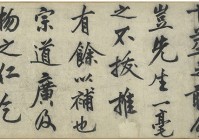 豈先生一毫
之不拔推
有餘以補也
宗道廣及
物之仁乞